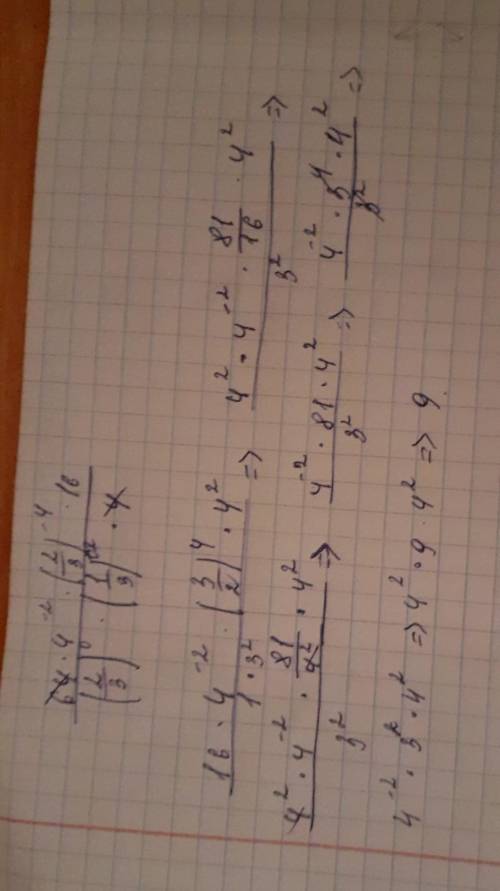 (64 · 4⁻² · (2/3)⁻⁴ · 16) / ((2/3)⁰ · (1/3)⁻² · 4)
(16 · 4⁻² · (3/2)⁴ · 4²) / (1 · 3²) => (4² · 4⁻² · 81/16 · 4²) / 3² =>
(4² · 4⁻² · 81/4² · 4²) / 3² => (4⁻² · 81 · 4²) / 3² => (4⁻² · 3⁴ · 4²) / 3² =>
4⁻² · 3² · 4² => 4² · 9 · 4² => 9